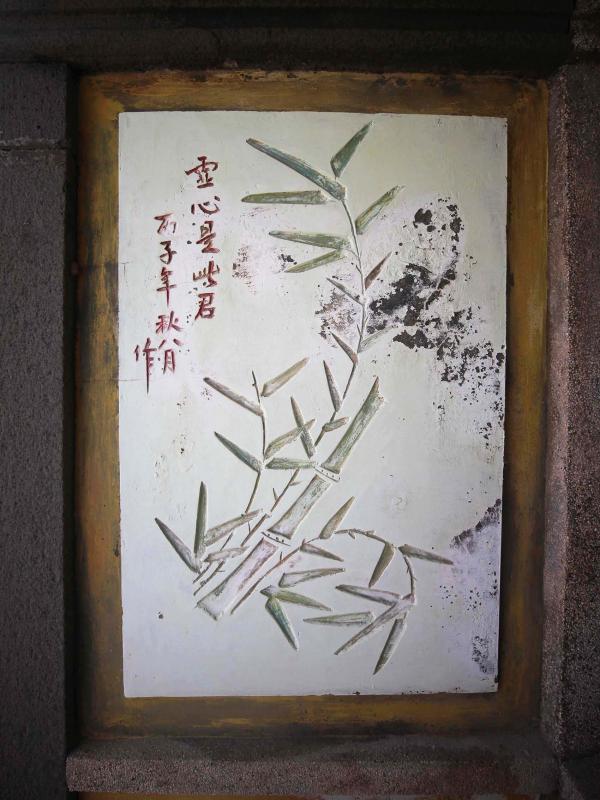 虛心是此君
丙子年秋八月
作